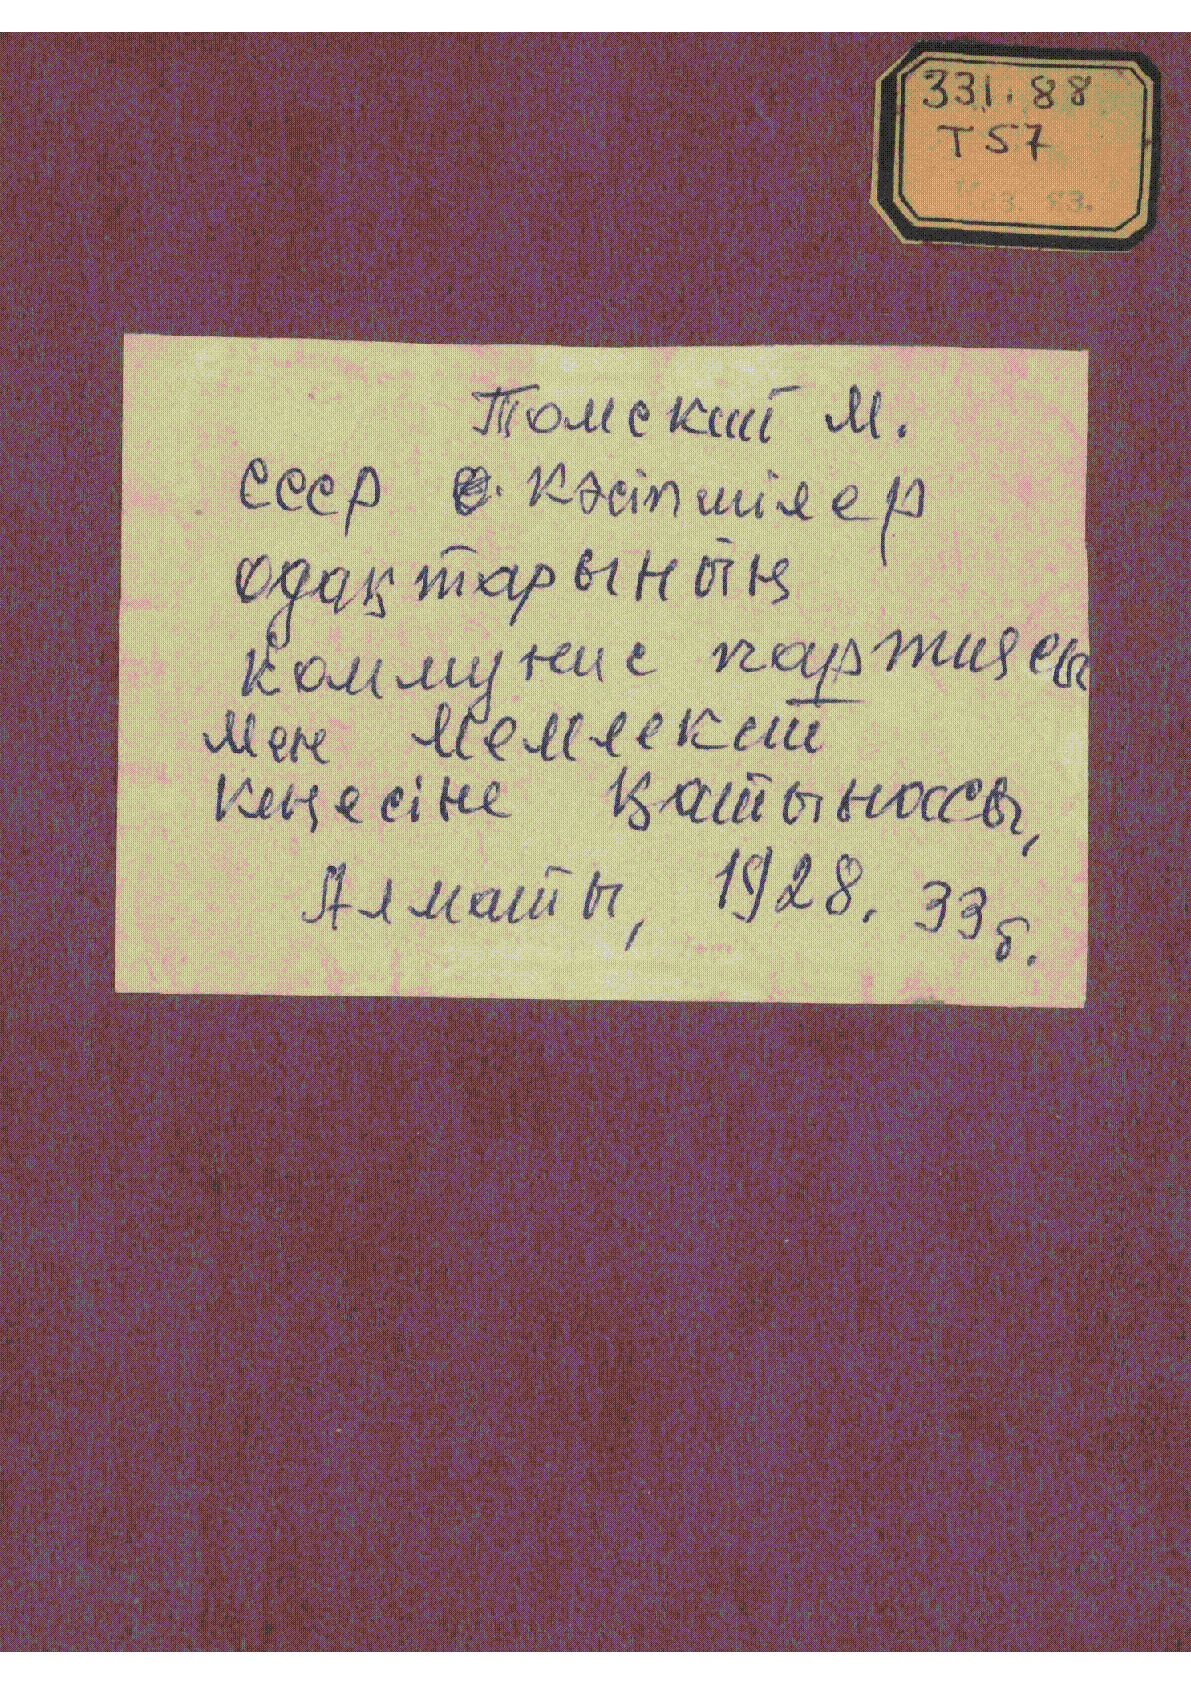 331.88
Т57
Каз. яз.
Томский М.
СССР Кәсіпшілер
одақтарының
Коммунис партиясы
мен мемлекит
кеңесіне қатынасы,
Алматы, 1928. 33б.